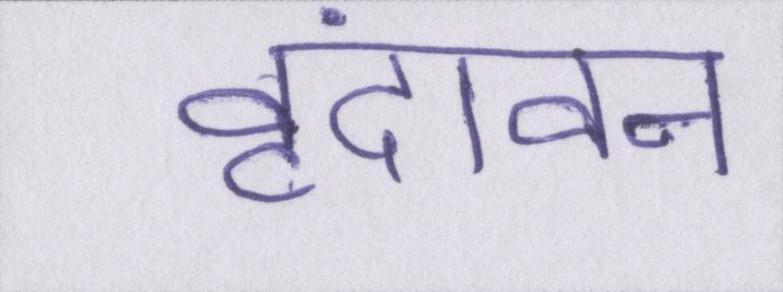 वृंदावन